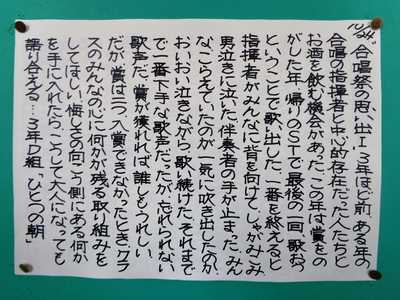 10/24 “合唱祭の思い出”13年ほど前、ある年の
合唱の指揮者と中心的存在だった人たちと
お酒を飲む機会があった。この年は賞をの
がした年。帰りのSTで最後の一回、歌おう
ということで歌い出した。一番を終えると
指揮者がみんなに背を向けて、しゃがみこみ
男泣きに泣いた。伴奏者の手が止まった。みん
な、こらえていたのが一気に吹き出したのか、
おいおい泣きながら、歌い続けた。それまで
で一番下手な歌声だったが、忘れられない
歌声だ。賞が獲れれば、誰しもうれしい。
だが、賞は三つ、入賞できなかったとき、クラ
スのみんなの心に何かが残る取り組みを
してほしい。悔しさの向こう側にある何か
を手に入れたら、こうして大人になっても
語り合える…3年D組「ひとつの朝」